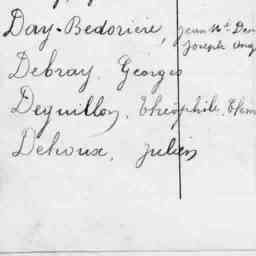 Day-Bedorière, Jean Bte Den
Joseph Aug
Debray, Georges
Deguillon, Théophile, Clém
Dehoux, Julien